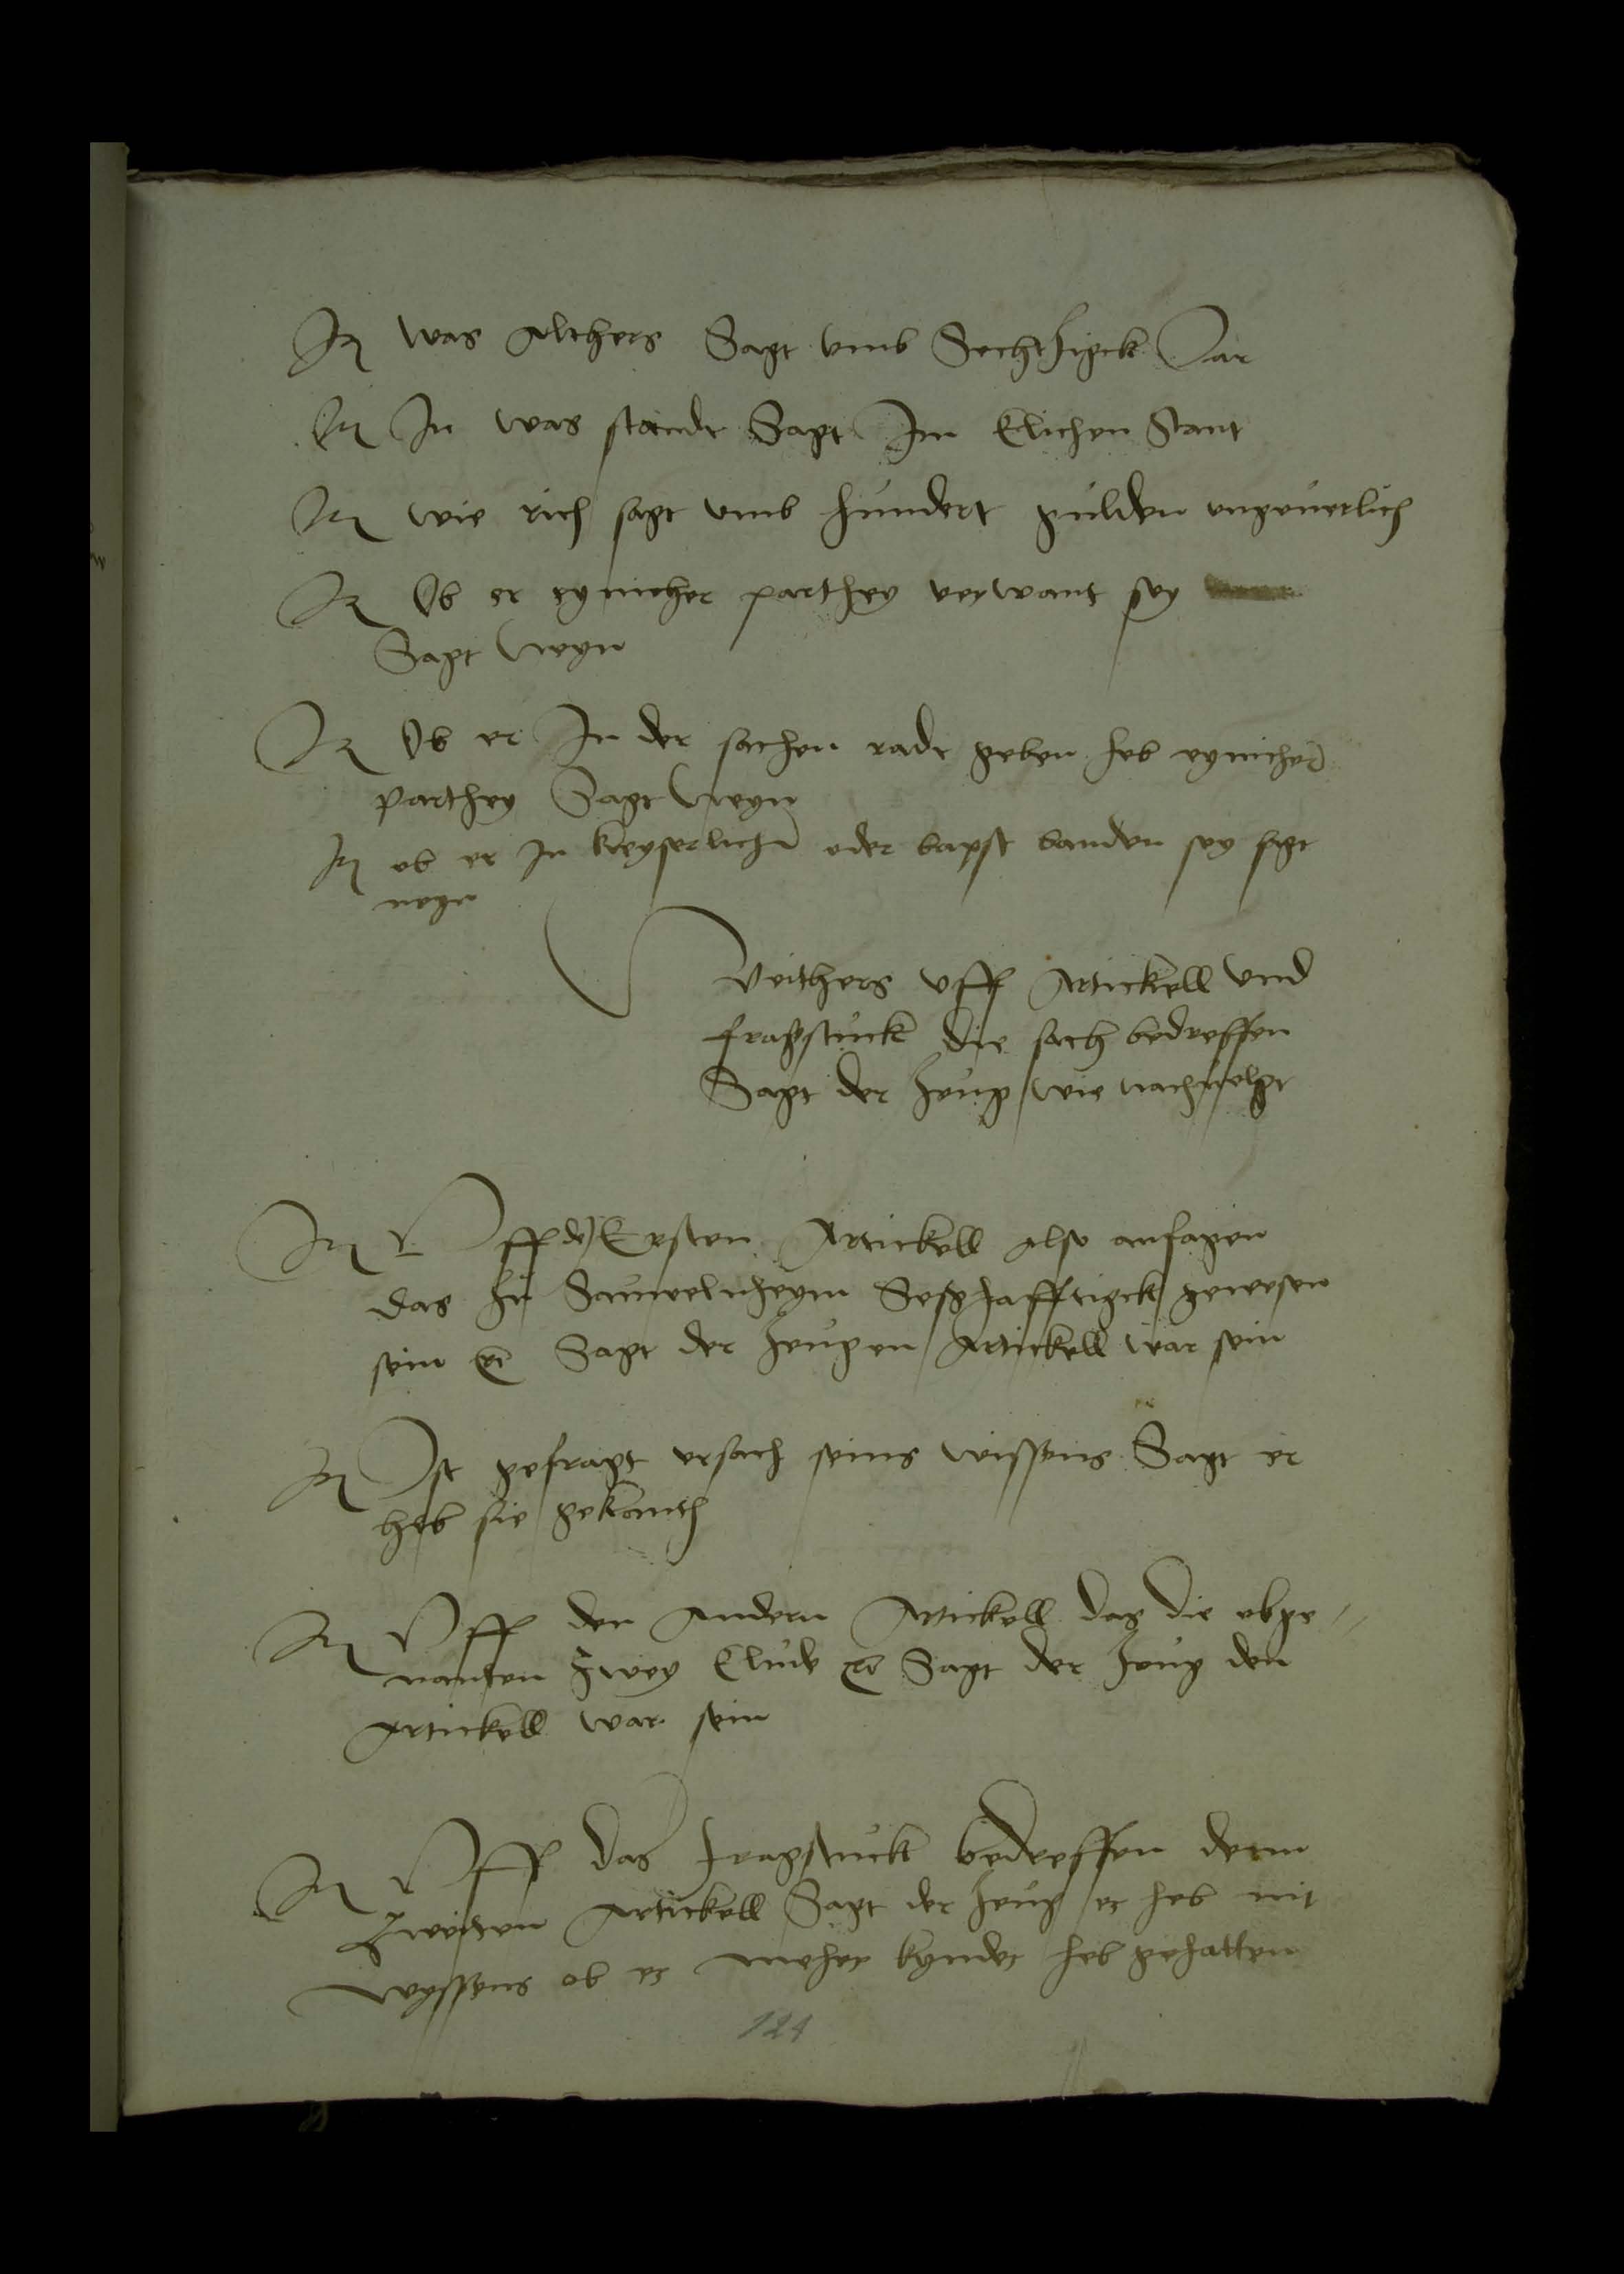 Jt was Althers Sagt vmb Sechtzigck Jar
Jt Jn was stande Sagt Jm Elichen Stant
Jt wie rich sagt vmb hundert gulden vngeuerlich
Jt Ob er eynicher parthey verwant sey
Sagt Neyn
Jt Ob er Jn der sachen radt geben heb eynicher
parthey Sagt Neyn
Jt ob er Jn keyserlicher oder bapst banden sey sagt
neyn
Veithers vff Artickell Vnd
fragstuck die sach bedreffen
Sagt der Zeug wie nachuolgt
Jt Vff den Ersten Artickell Also anfagen
das zu Sauwelnheym Seßhafftigck gewesen
sein etc Sagt der Zeugen Artickell war sein
Jt Jst gefragt vrsach seins wissens Sagt er
heb sie gekanth
Jt Vff den Andern Artickell das die obge
nanten Zwey Elude etc Sagt der Zeug den
Artickell war sein
Jt Vff das fragstuck bedreffen denn
Zweiten Artickell Sagt der Zeug er heb nit
wyssens ob er meher kynder heb gehatten
124